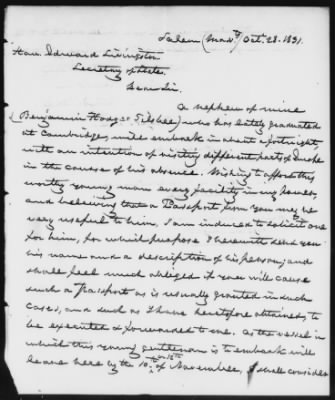 Salem (Mass) Oct. 28. 1831.
Hon. Edward Livingston
Secretary of State.
Dear Sir.
A nephew of mine
(Benjamin Hodges Silsbee) who has lately graduated
at Cambridge, will embark in about a fortnight
with an intention of visiting different parts of
in the course of his absence. Wishing to afford this
worthy young man every facility in my power,
and believing that a Passport from you may be
very useful to him, I am induced to solicit one
for him, for which purpose I herewith send you
his name and a description of his person, and
shall feel much obliged if you will cause
such a Passport as is usually granted in such
cases, and such as I have heretofore obtained, to
be executed & forwarded to me. As the vessel in
which this young gentleman is to embark will
leave here by the 10th or 12th of November, I shall consider